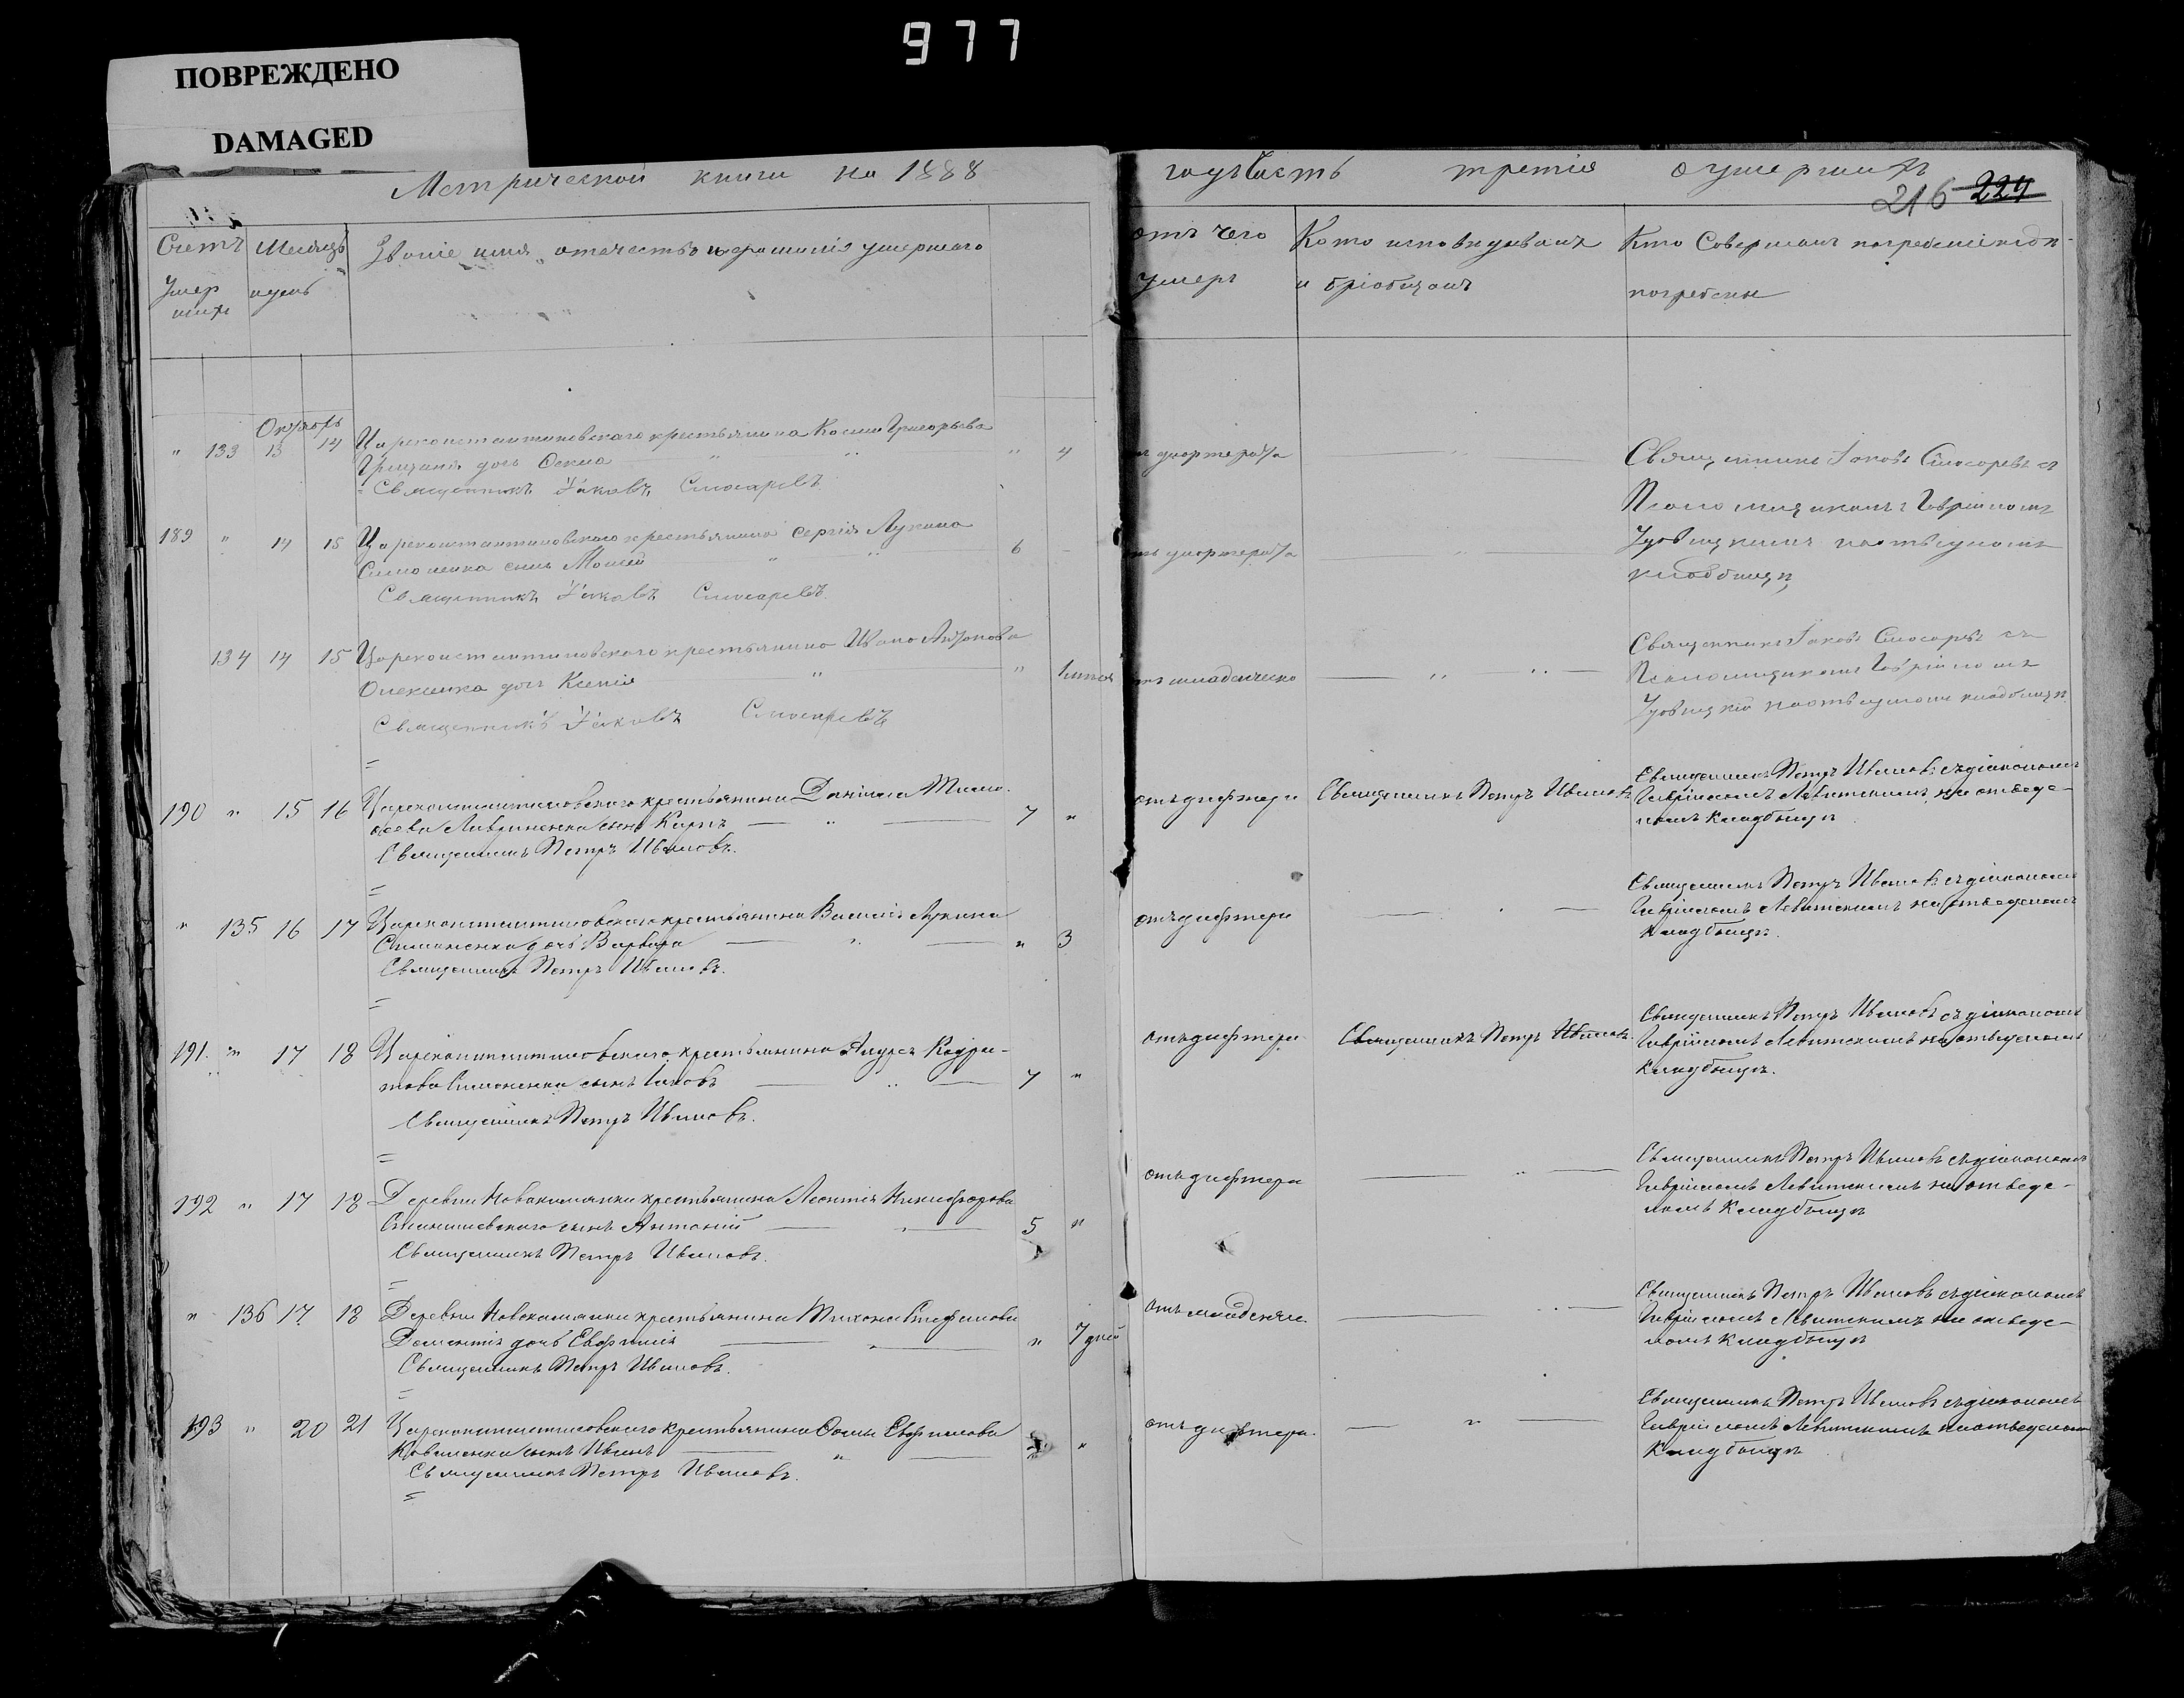 977
ПОВРЕЖДЕНО
DAMAGED
Метрической книги на 1888
годъ Часть третія о умершихъ
216 224
Счетъ Умер шихъ
Месяцъ и день
Званіе имя, отечество и фамилія умершаго
отъ чего умеръ
Кто исповѣдывалъ и пріобщалъ
Кто Совершалъ погребеніе и гдѣ погребены
Октябрь
" 133 13 14 Цареконстантиновскаго крестьянина Косми Григорьева
Грищенка дочь " " 4
Священникъ Іаковъ Слюсаревъ
Священникъ Іаковъ Слюсаревъ съ
Псаломщикомъ Гавріиломъ
189 " 14 15 Цареконстантиновскаго крестьянина Сергія Лукина
Симоненка сынъ Мойсей " 6 -
Священникъ Іаковъ Слюсаревъ
кладбищѣ
134 14 15 Цареконстантиновскаго крестьянина Ивана
дочь Ксенія " "
Священникъ Іаковъ Слюсаревъ
Священникъ Іаковъ Слюсаревъ съ
Псаломщикомъ Гавріиломъ
кладбищѣ
190 " 15 16 Цареконстантиновскаго крестьянина Даніила Тимо-
ѳеева Лавриненка сынъ Карпъ " 7 "
Священникъ Петръ Ивановъ.
отъ дифтери
Священникъ Петръ Ивановъ
Священникъ Петръ Ивановъ съ діакономъ
Гавріиломъ Левитскимъ на отведе-
номъ кладбищѣ
" 135 16 17 Цареконстантиновскаго крестьянина Василія Лукина
Симоненка дочь Варвара " " 3
Священникъ Петръ Ивановъ.
отъ дифтери
Священникъ Петръ Ивановъ съ діакономъ
Гавріиломъ Левитскимъ на отведеномъ
кладбищѣ.
191. " 17 18 Цареконстантиновскаго крестьянина Андрея Кодра-
това Симоненка сынъ Іаковъ " 7 "
Священникъ Петръ Ивановъ.
отъ дифтери
Священникъ Петръ Ивановъ.
Священникъ Петръ Ивановъ съ діакономъ
Гавріиломъ Левитскимъ на отведеномъ
кладбищѣ.
192 " 17 18 Деревни Новокаманки крестьянина Леонтія Никифорова
сынъ Антоній " 5 "
Священникъ Петръ Ивановъ.
отъ дифтери
Священникъ Петръ Ивановъ съ діакономъ
Гавріиломъ Левитскимъ на отведе-
номъ кладбищѣ
" 136 17 18 Деревни Новокаманки крестьянина Тихона Стефанова
дочь Евфимія " " 7 дней
Священникъ Петръ Ивановъ.
отъ младенче.
Священникъ Петръ Ивановъ съ діакономъ
Гавріиломъ Левитскимъ на отведе-
номъ кладбищѣ
193 " 20 21 Цареконстантиновскаго крестьянина Ѳомы Евфимова
Коваленка сынъ Иванъ " "
Священникъ Петръ Ивановъ.
отъ дифтери.
Священникъ Петръ Ивановъ съ діакономъ
Гавріиломъ Левитскимъ на отведеномъ
кладбищѣ